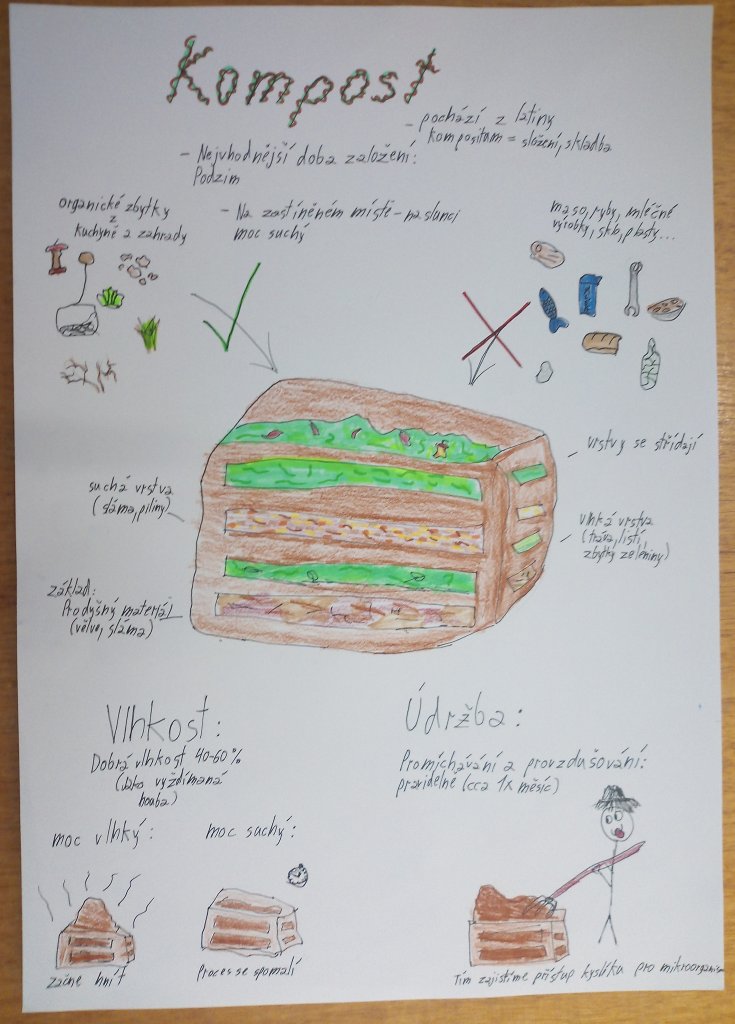 Kompost
- pochází z latiny
kompositum = složení, skladba
- Nejvhodnější doba založení:
Podzim
organické zbytky
z
kuchyně a zahrady
- Na zastíněném místě - na slunci
moc suchý
maso, ryby, mléčné
výrobky, sklo, plasty...
vrstvy se střídají
suchá vrstva
(sláma, piliny)
vlhká vrstva
(tráva, listí,
zbytky zeleniny)
základ:
Prodyšný materiál
(větve, sláma)
Vlhkost:
Dobrá vlhkost 40-60%
(jako vyždímaná
houba)
moc vlhký:
moc suchý:
začne hnít
Proces se spomalí
Údržba:
Promíchávání a provzdušování:
pravidelně (cca 1x měsíc)
Tím zajistíme přístup kyslíku pro mikroorganism